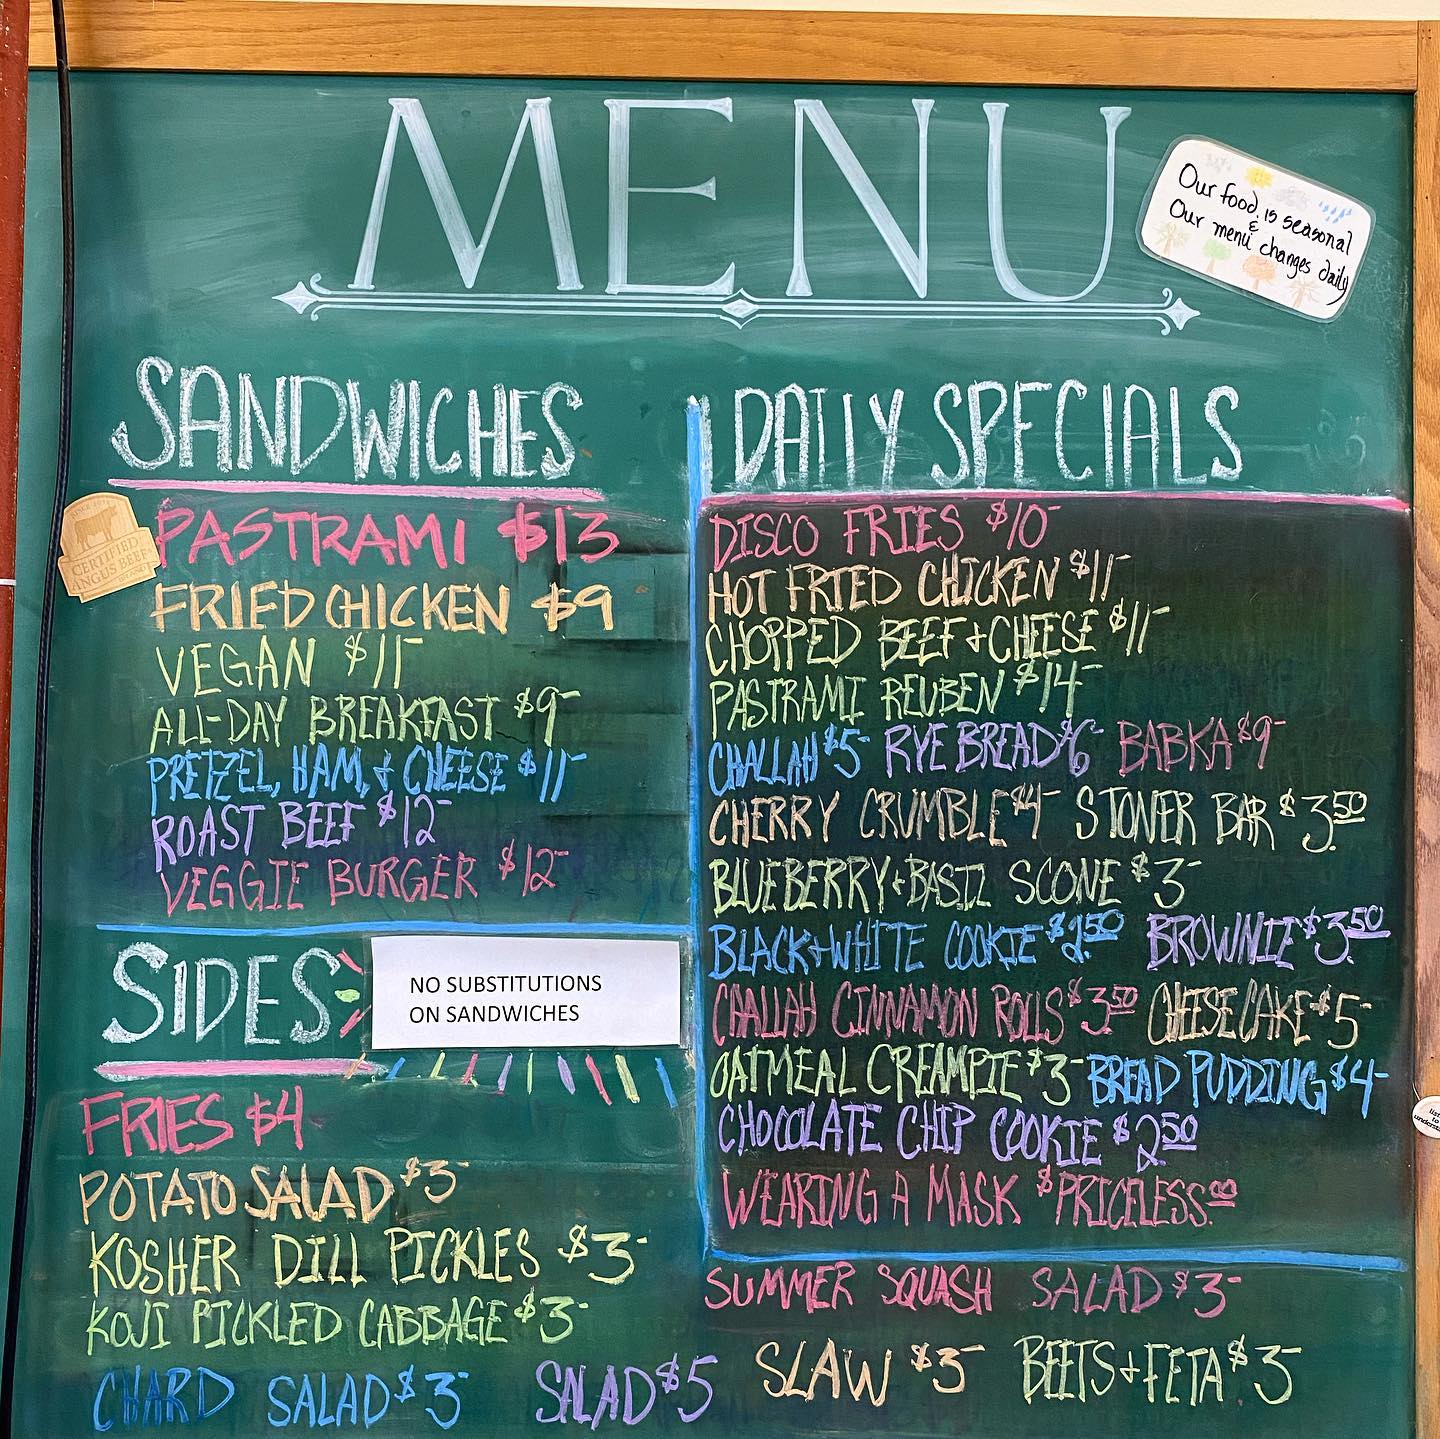 MENU
Our food is seasonal
&
Our menu changes daily
SANDWICHES
CERTIFIED
ANGUS BEEF
PASTRAMI $13
FRIED CHICKEN $9
VEGAN $11-
ALL-DAY BREAKFAST $9-
PRETZEL, HAM, & CHEESE $11-
ROAST BEEF $12-
VEGGIE BURGER $12-
SIDES:
NO SUBSTITUTIONS
ON SANDWICHES
FRIES $4
POTATO SALAD $3-
KOSHER DILL PICKLES $3-
KOJI PICKLED CABBAGE $3-
CHARD SALAD $3- SALAD $5
DAILY SPECIALS
DISCO FRIES $10-
HOT FRIED CHICKEN $11-
CHOPPED BEEF + CHEESE $11-
PASTRAMI REUBEN $14-
CHALLAH $5- RYE BREAD $6- BABKA $9-
CHERRY CRUMBLE $4- STONER BAR $3.50
BLUEBERRY + BASIL SCONE $3-
BLACK + WHITE COOKIE $2.50 BROWNIE $3.50
CHALLAH CINNAMON ROLLS $3.50 CHEESECAKE $5-
OATMEAL CREAMPIE $3- BREAD PUDDING $4-
CHOCOLATE CHIP COOKIE $2.50
WEARING A MASK $PRICELESS.00
SUMMER SQUASH SALAD $3-
SLAW $3- BEETS + FETA $3-